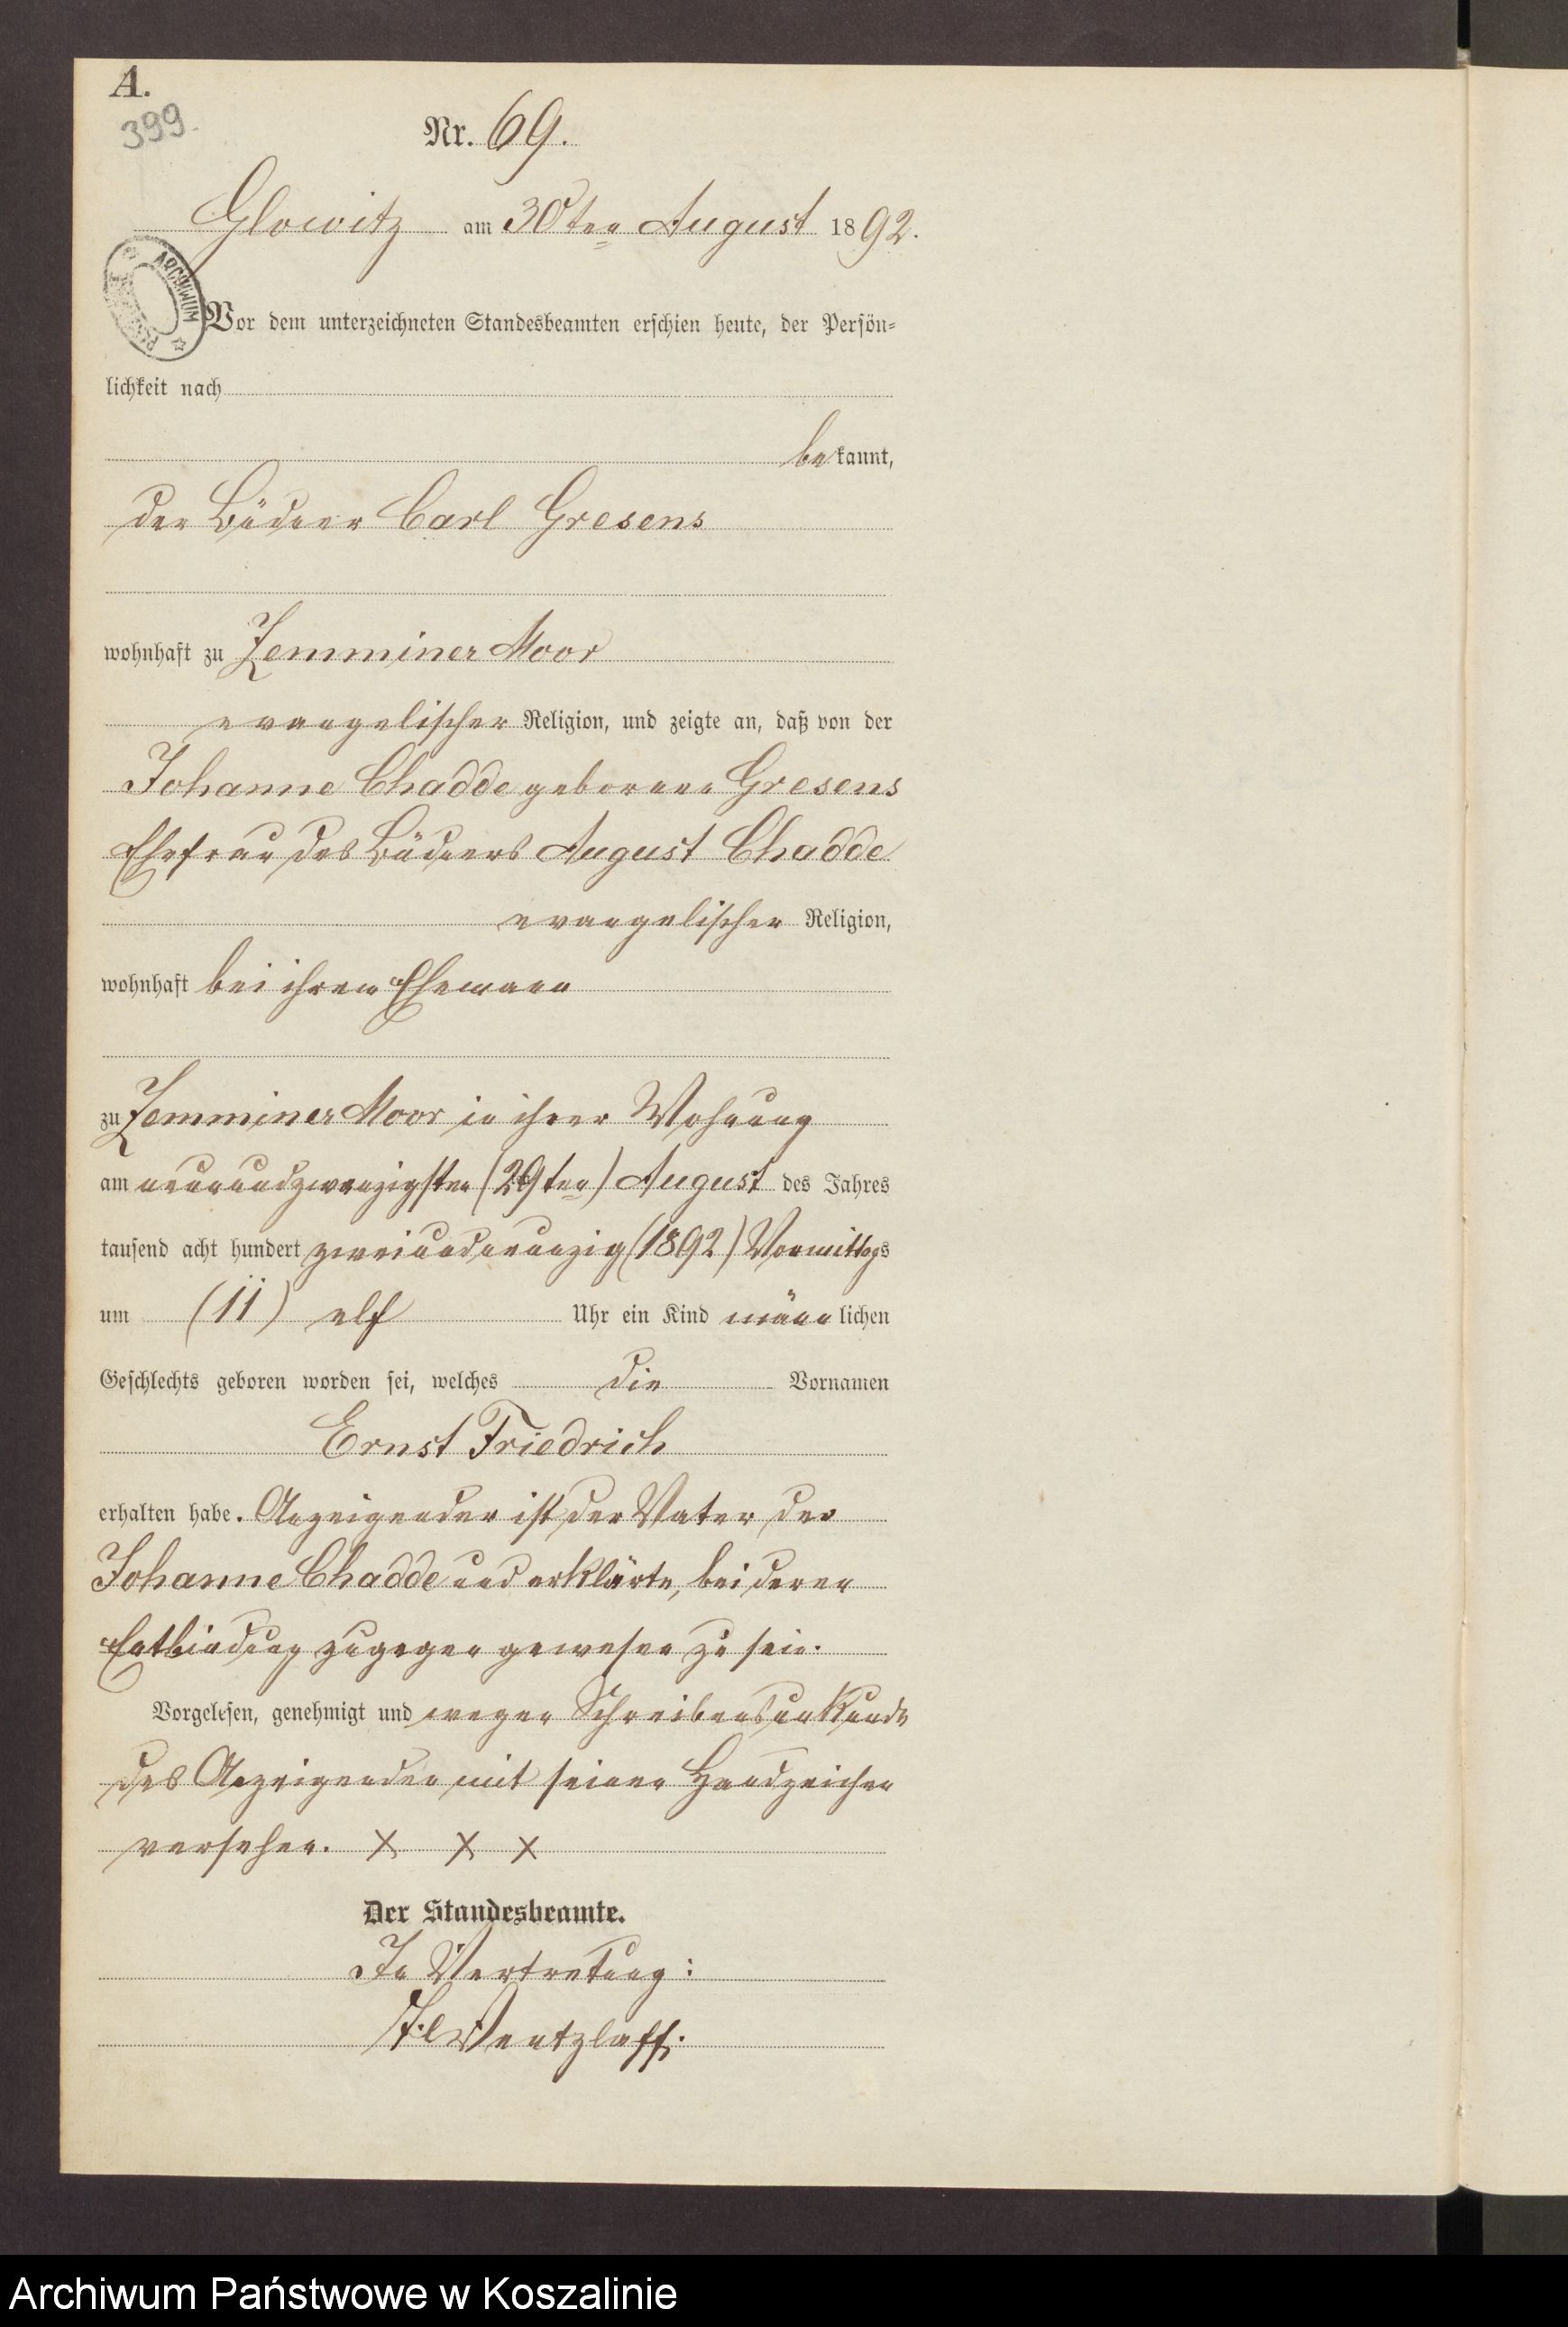 A.
399.
Nr. 69.
Glowitz am 30ten August 1892.
ARCHIWUM
Vor dem unterzeichneten Standesbeamten erschien heute, der Persön=
lichkeit nach
bekannt,
der Büdner Carl Gresens
wohnhaft zu Zemminer Moor
evangelischer Religion, und zeigte an, daß von der
Johanne Chadde geborene Gresens
Ehefrau des Büdners August Chadde
evangelischer Religion,
wohnhaft bei ihrem Ehemann
zu Zemminer Moor in ihrer Wohnung
am neunundzwanzigsten (29ten) August des Jahres
tausend acht hundert zweiundneunzig (1892) Vormittags
um (11) elf Uhr ein Kind männlichen
Geschlechts geboren worden sei, welches die Vornamen
Ernst Friedrich
erhalten habe. Anzeigender ist der Vater der
Johanne Chadde und erklärte, bei deren
Entbindung zugegen gewesen zu sein.
Vorgelesen, genehmigt und wegen Schreibensunkunde
des Anzeigenden mit seinen Handzeichen
versehen. X X X
Der Standesbeamte.
In Vertretung:
Wentzlaff.
Archiwum Państwowe w Koszalinie